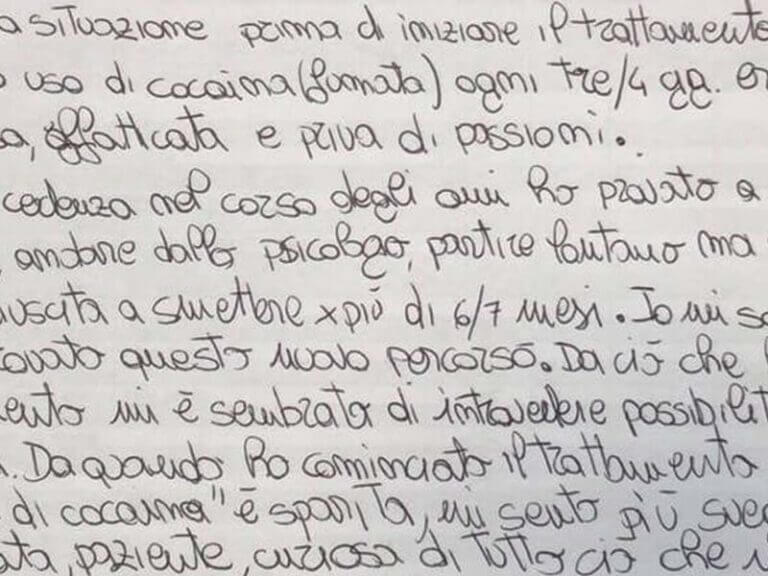 a situazione prima di iniziare il trattamento
uso di cocaina (fumata) ogni tre/4 gg. er
sa, affaticata e priva di passioni.
cedenza nel corso degli anni ho provato a
andare dallo psicologo, partire lontano ma
iuscita a smettere x più di 6/7 mesi. Io mi so
rovato questo nuovo percorso. Da ciò che
ento mi è sembrata di intravedere possibilit
. Da quando ho cominciato il trattamento
di cocaina" è sparita, mi sento più sve
ata, paziente, curiosa di tutto ciò che